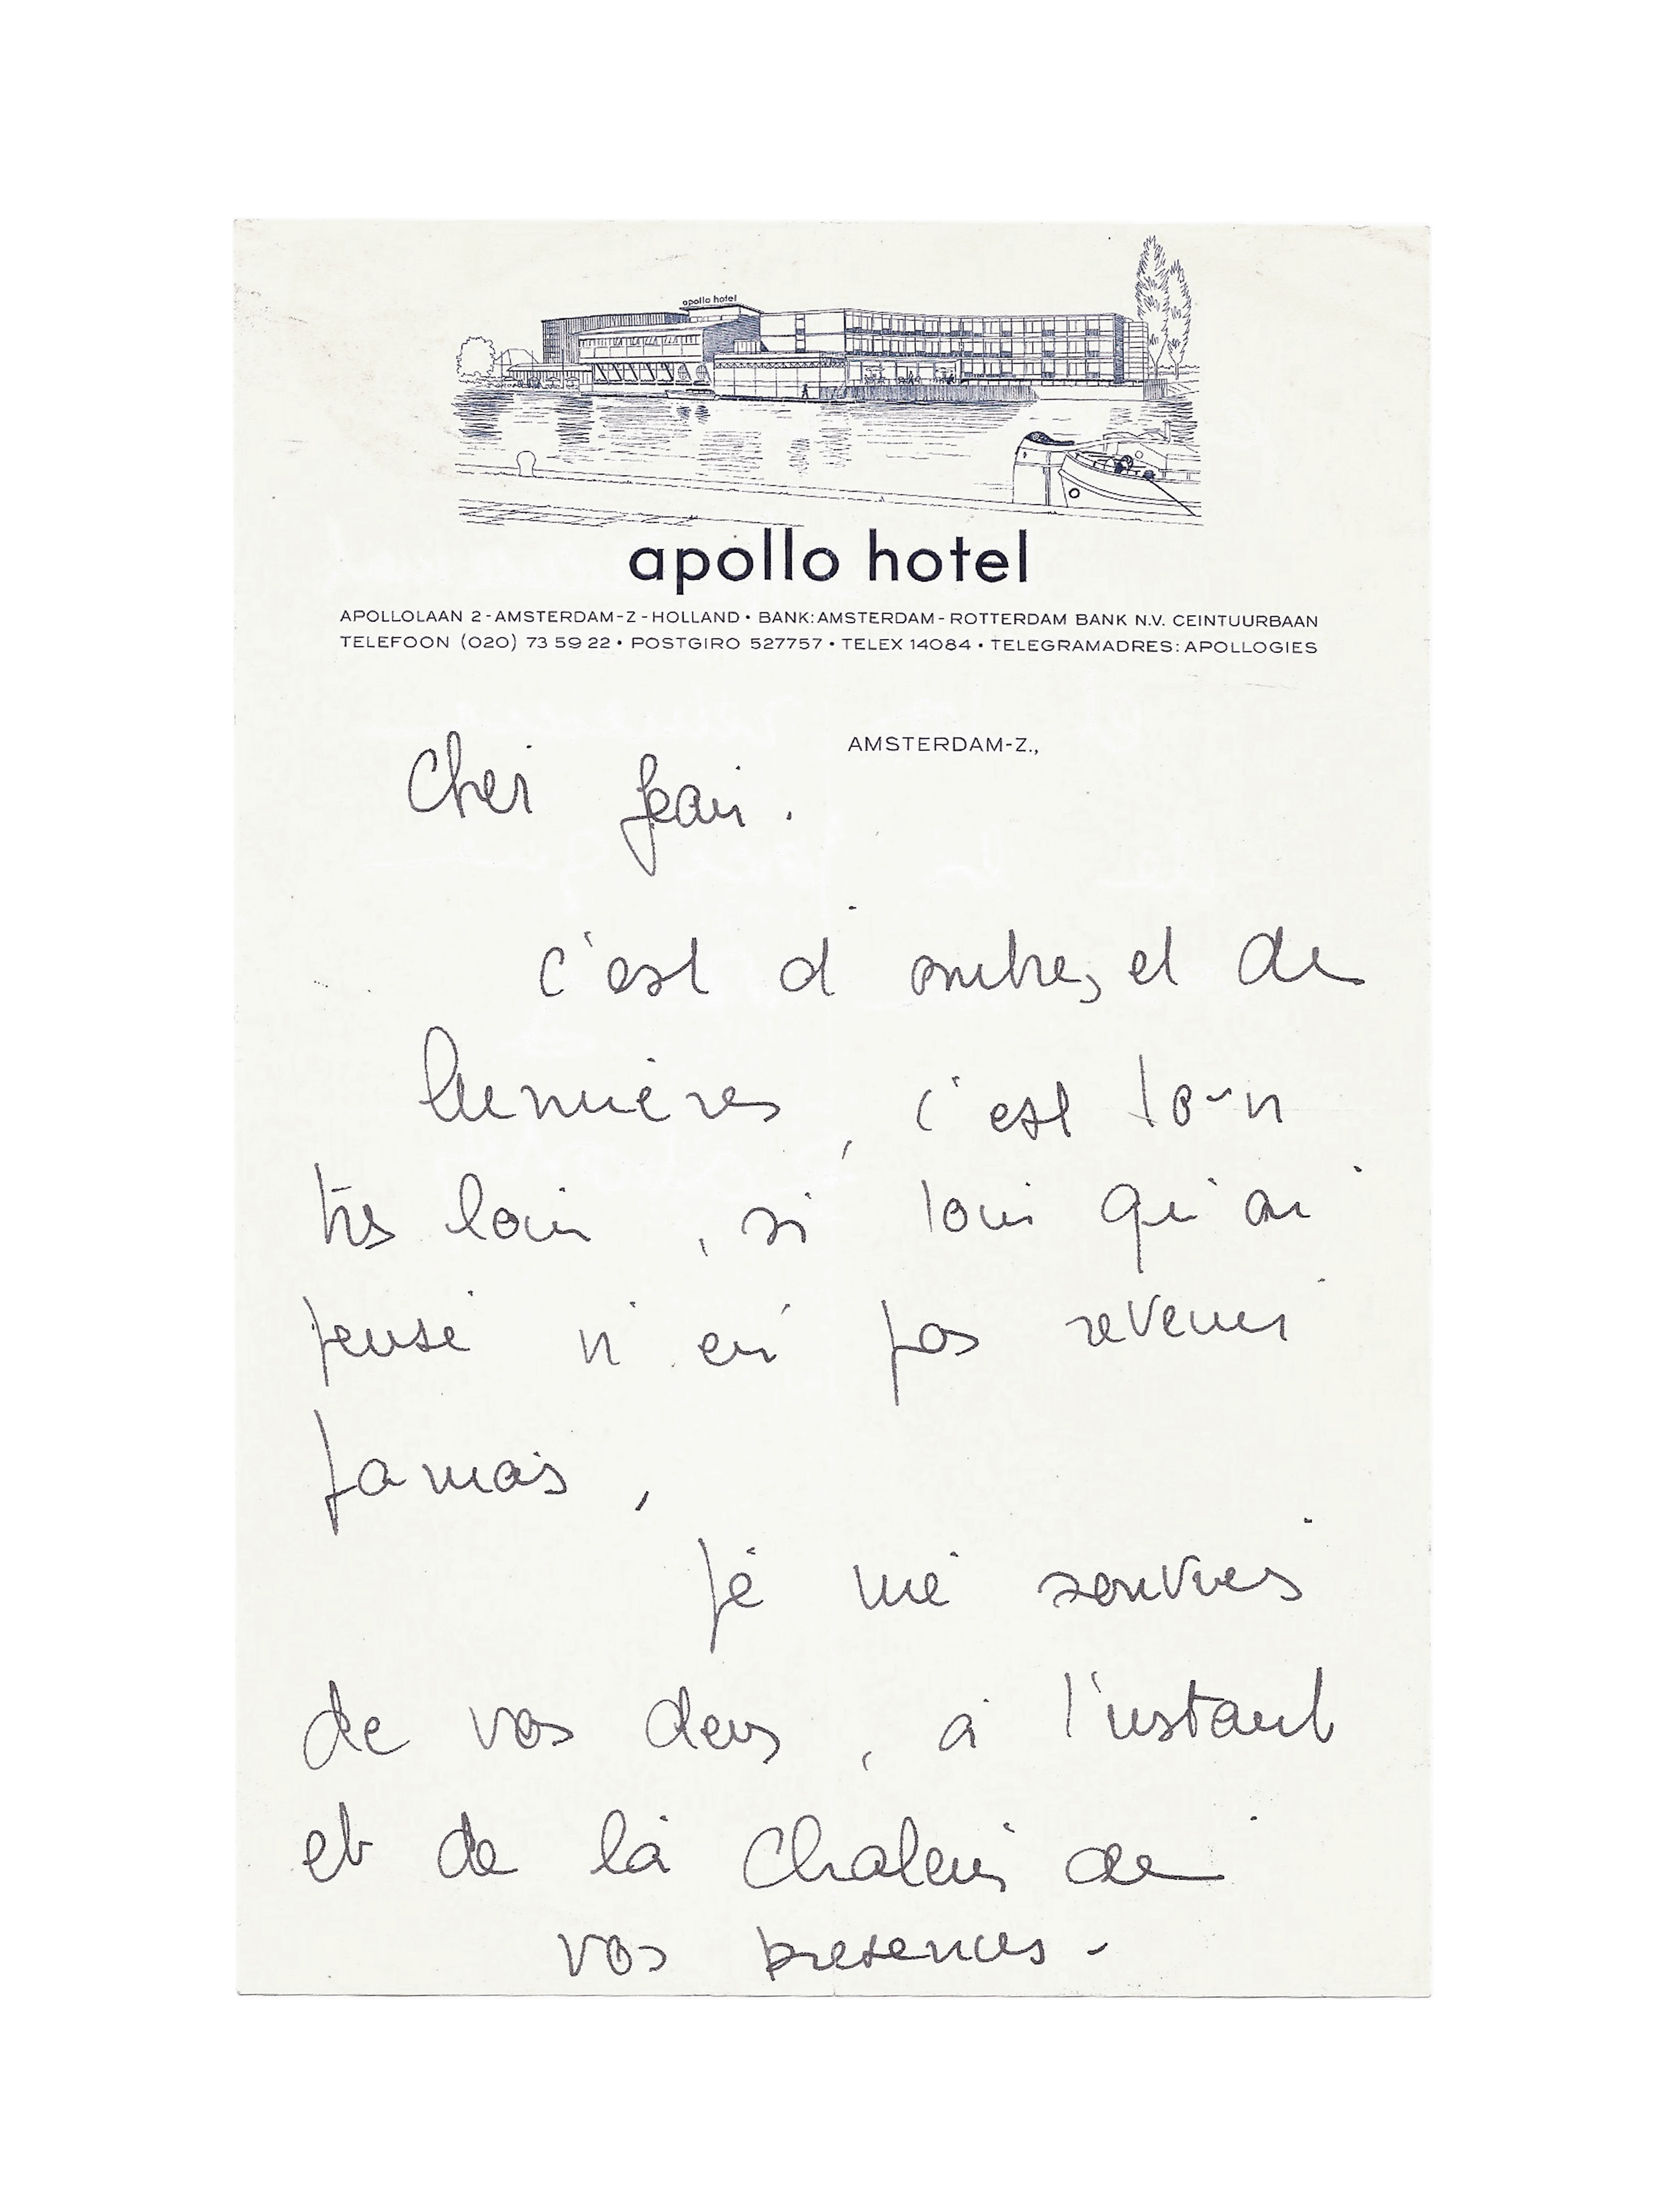 apollo hotel
apollo hotel
APOLLOLAAN 2-AMSTERDAM-Z-HOLLAND • BANK: AMSTERDAM-ROTTERDAM BANK N.V. CEINTUURBAAN
TELEFOON (020) 73 59 22 • POSTGIRO 527757 • TELEX 14084 • TELEGRAMADRES: APOLLOGIES
AMSTERDAM-Z.,
Cher Jean.
c'est d'ombres et de
lumières, c'est loin
très loin, si loin qu'on
pense n'en pas revenir
jamais,
Je me souviens
de vos deux, à l'instant
et de la chaleur de
vos presences -